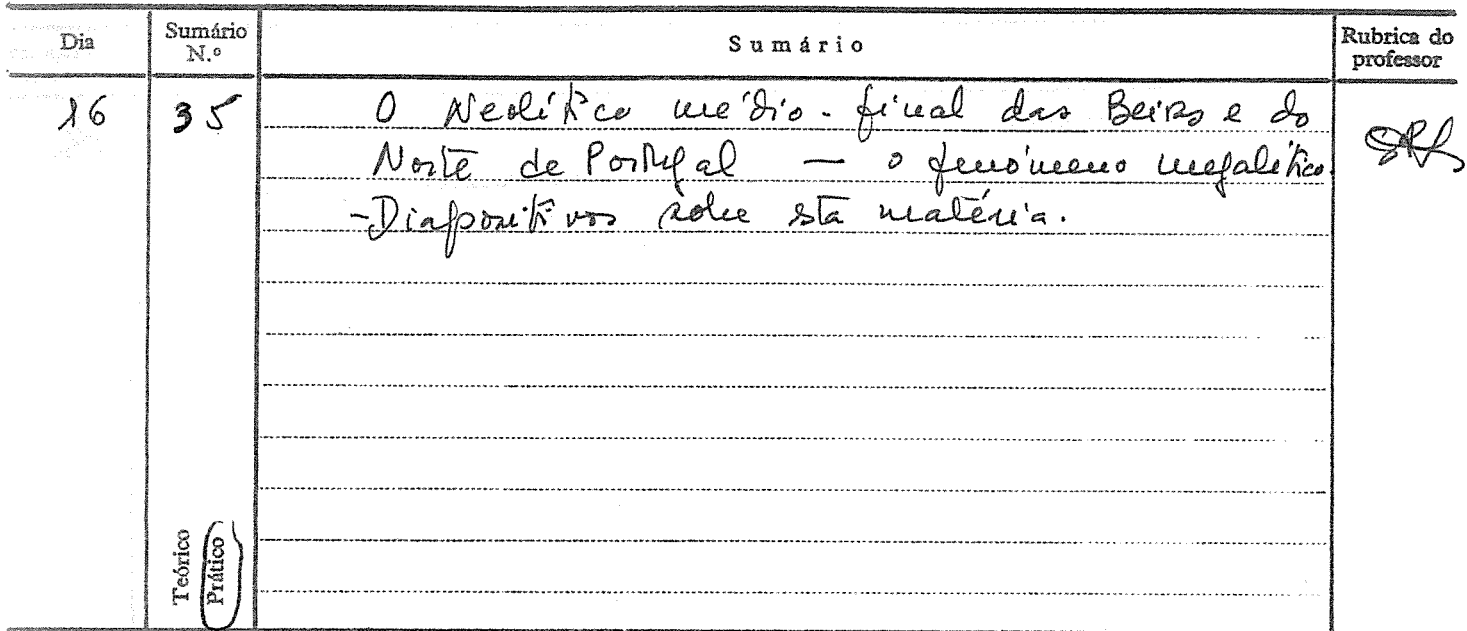 Dia
Sumário N.º
Sumário
Rubrica do professor
16
35
O Neolítico médio-final das Beiras e do
Norte de Portugal — o fenómeno megalítico.
-Diapositivos sobre esta matéria.
Teórico
Prático